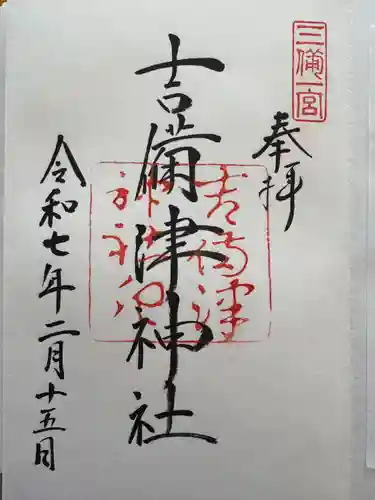 三備一宮
奉拝
吉備津神社
令和七年二月十五日